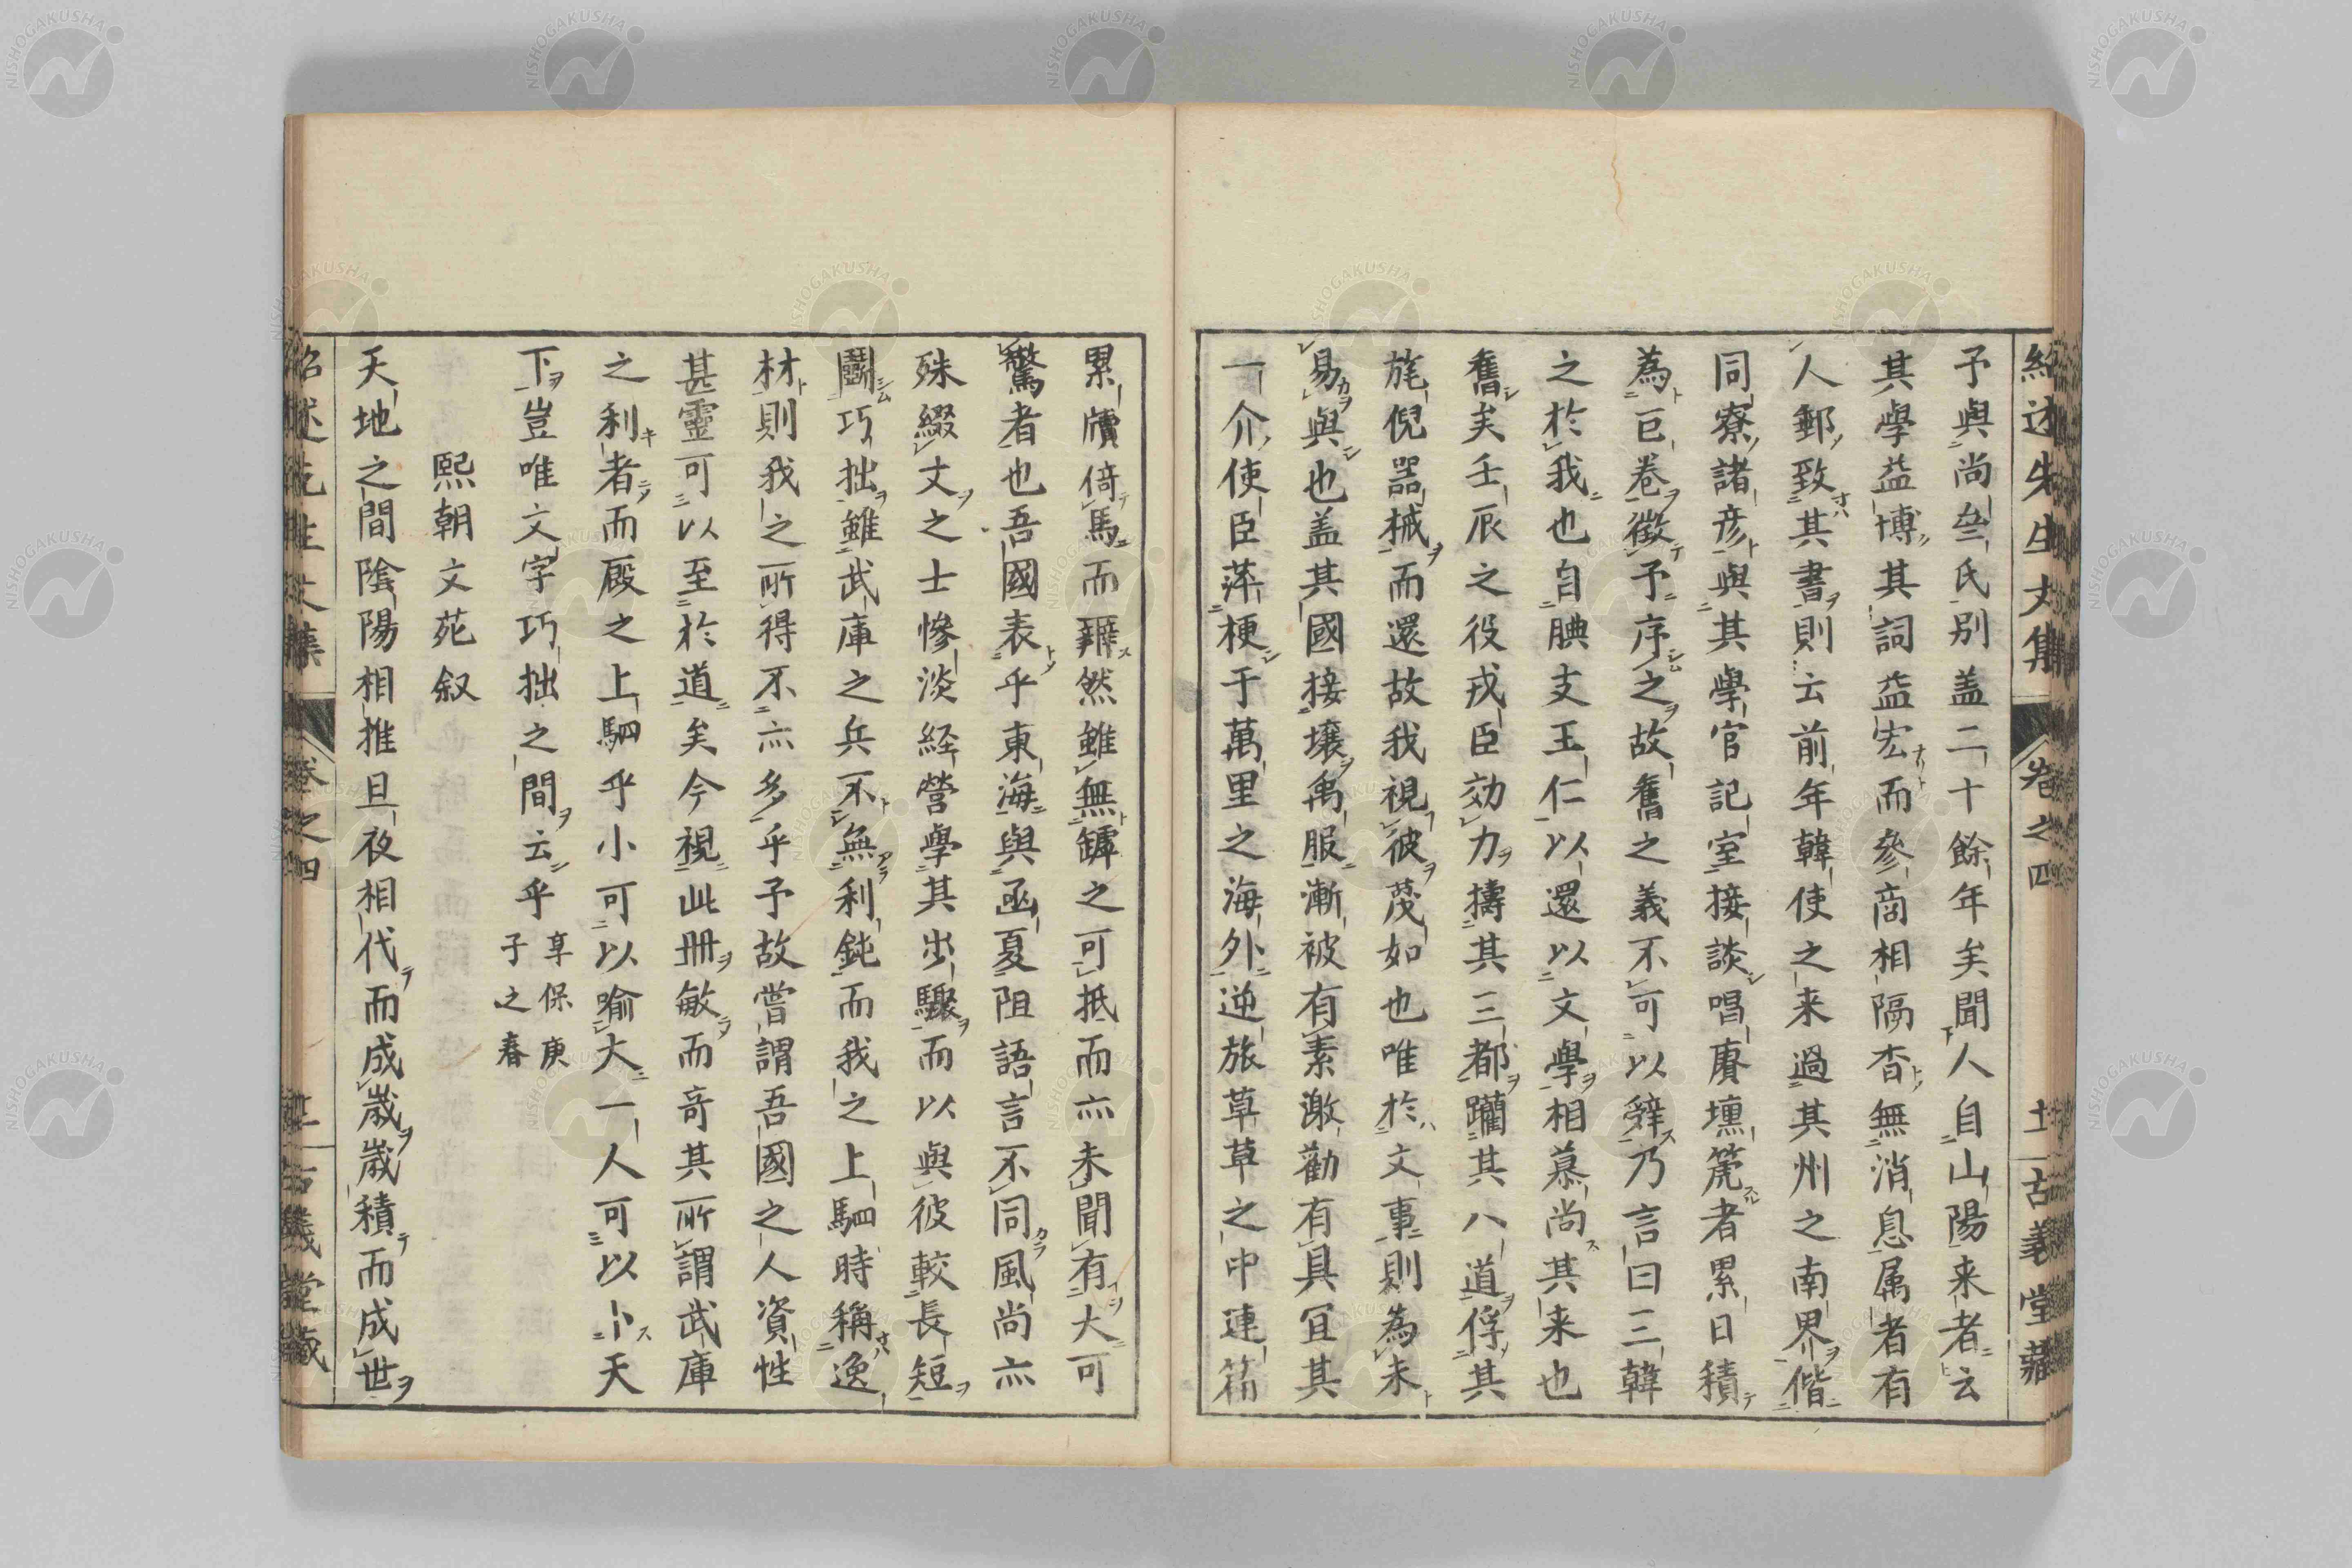 紹述先生文集 卷之四 十一 古義堂藏
予與尚叄氏別盖二十餘年矣聞人自山陽来者云
其學益博其詞益宏而參商相隔杳無消息属者有
人郵致其書則云前年韓使之来過其州之南界偕
同寮諸彦與其學官記室接談唱賡壎箎者累日積
為巨巻徴予序之故舊之義不可以辤乃言曰三韓
之於我也自腆支王仁以還以文學相慕尚其来也
舊矣壬辰之役戎臣効力擣其三都躪其八道俘其
旄倪器械而還故我視彼蔑如也唯於文事則為未
易與也盖其國接壤禹服漸被有素激勸有具冝其
一介使臣萍梗于萬里之海外逆旅草草之中連箱
累牘倚馬而辨然雖無罅之可抵而亦未聞有大可
驚者也吾國表乎東海與函夏阻語言不同風尚亦
殊綴文之士慘淡経營學其出驟而以與彼較長短
鬪巧拙雖武庫之兵不無利鈍而我之上駟時稱逸
材則我之所得不亦多乎予故嘗謂吾國之人資性
甚靈可以至於道矣今視此冊敏而竒其所謂武庫
之利者而厩之上駟乎小可以喻大一人可以卜天
下豈唯文字巧拙之間云乎 享保庚子之春
熙朝文苑叙
天地之間陰陽相推旦夜相代而成歳歳積而成世
紹述先生文集 卷之四 古義堂藏